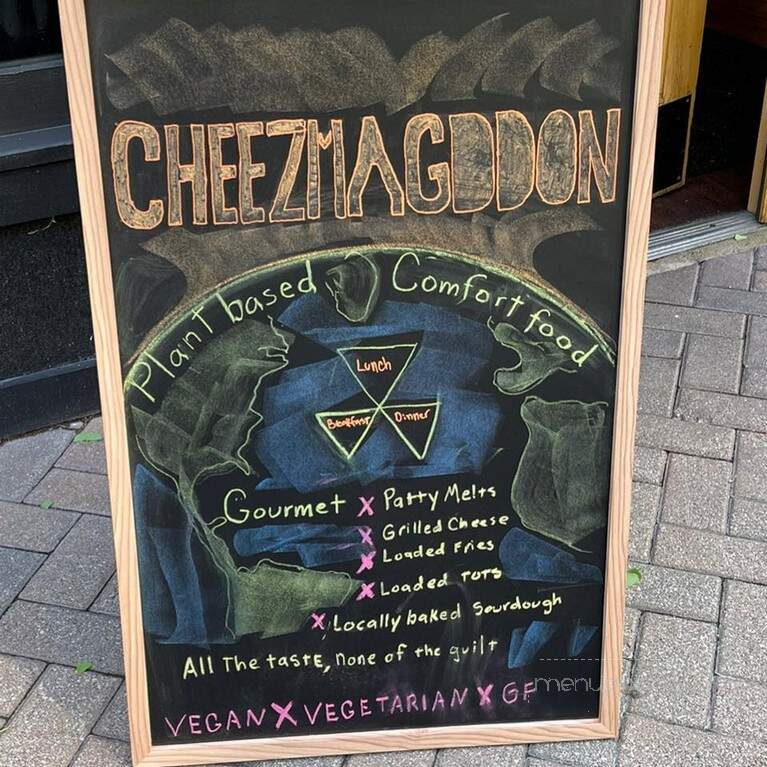 CHEEZMAGDDON
Plant based Comfort food
Lunch
Breakfast Dinner
Gourmet x Patty Melts
x Grilled Cheese
x Loaded Fries
x Loaded TOTS
x Locally baked Sourdough
All The tastE, none of the guilt
VEGAN X VEGETARIAN X GF